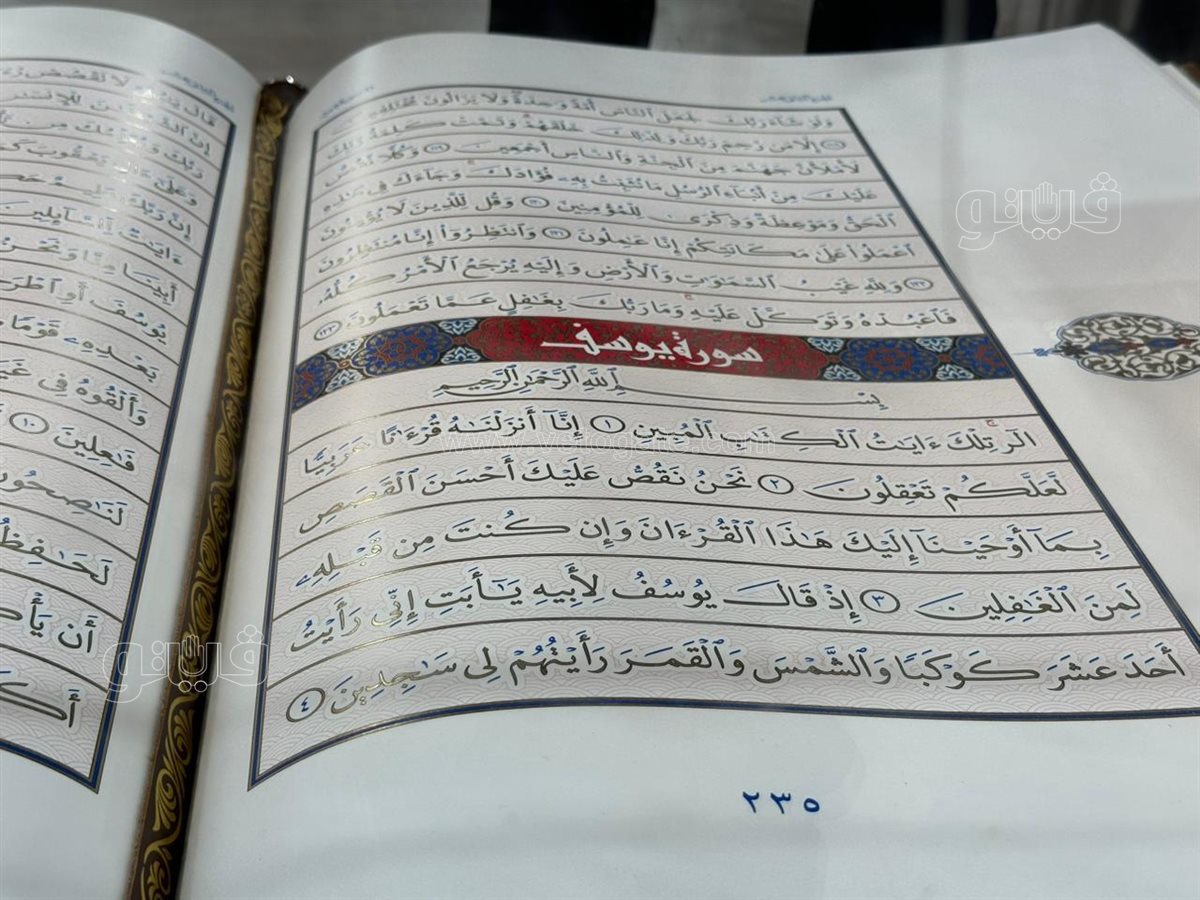 ولو شاء ربك لجعل الناس أمة واحدة ولا يزالون مختلفين
١١٨ إلا من رحم ربك ولذلك خلقهم وتمت كلمة ربك
لأملأن جهنم من الجنة والناس أجمعين ١١٩ وكلا نقص
عليك من أنباء الرسل ما نثبت به فؤادك وجاءك في هذه
الحق وموعظة وذكرى للمؤمنين ١٢٠ وقل للذين لا يؤمنون
اعملوا على مكانتكم إنا عاملون ١٢١ وانتظروا إنا منتظرون
١٢٢ ولله غيب السموات والأرض وإليه يرجع الأمر كله
فاعبده وتوكل عليه وما ربك بغافل عما تعملون ١٢٣
سورة يوسف
بسم الله الرحمن الرحيم
الٓر تِلْكَ ءَايَٰتُ ٱلْكِتَٰبِ ٱلْمُبِينِ ١ إِنَّآ أَنزَلْنَٰهُ قُرْءَٰنًا عَرَبِيًّا
لَّعَلَّكُمْ تَعْقِلُونَ ٢ نَحْنُ نَقُصُّ عَلَيْكَ أَحْسَنَ ٱلْقَصَصِ
بِمَآ أَوْحَيْنَآ إِلَيْكَ هَٰذَا ٱلْقُرْءَانَ وَإِن كُنتَ مِن قَبْلِهِۦ
لَمِنَ ٱلْغَٰفِلِينَ ٣ إِذْ قَالَ يُوسُفُ لِأَبِيهِ يَٰٓأَبَتِ إِنِّى رَأَيْتُ
أَحَدَ عَشَرَ كَوْكَبًا وَٱلشَّمْسَ وَٱلْقَمَرَ رَأَيْتُهُمْ لِى سَٰجِدِينَ ٤
٢٣٥
قال
إن
إن ربك
ءايت للسائلين
أبينا منا ونحن
يوسف أو اطر
بعده قوما
وألقوه في
فاعلين ١٠
لناصحون
أن يأ
ڤيانو
ڤيانو